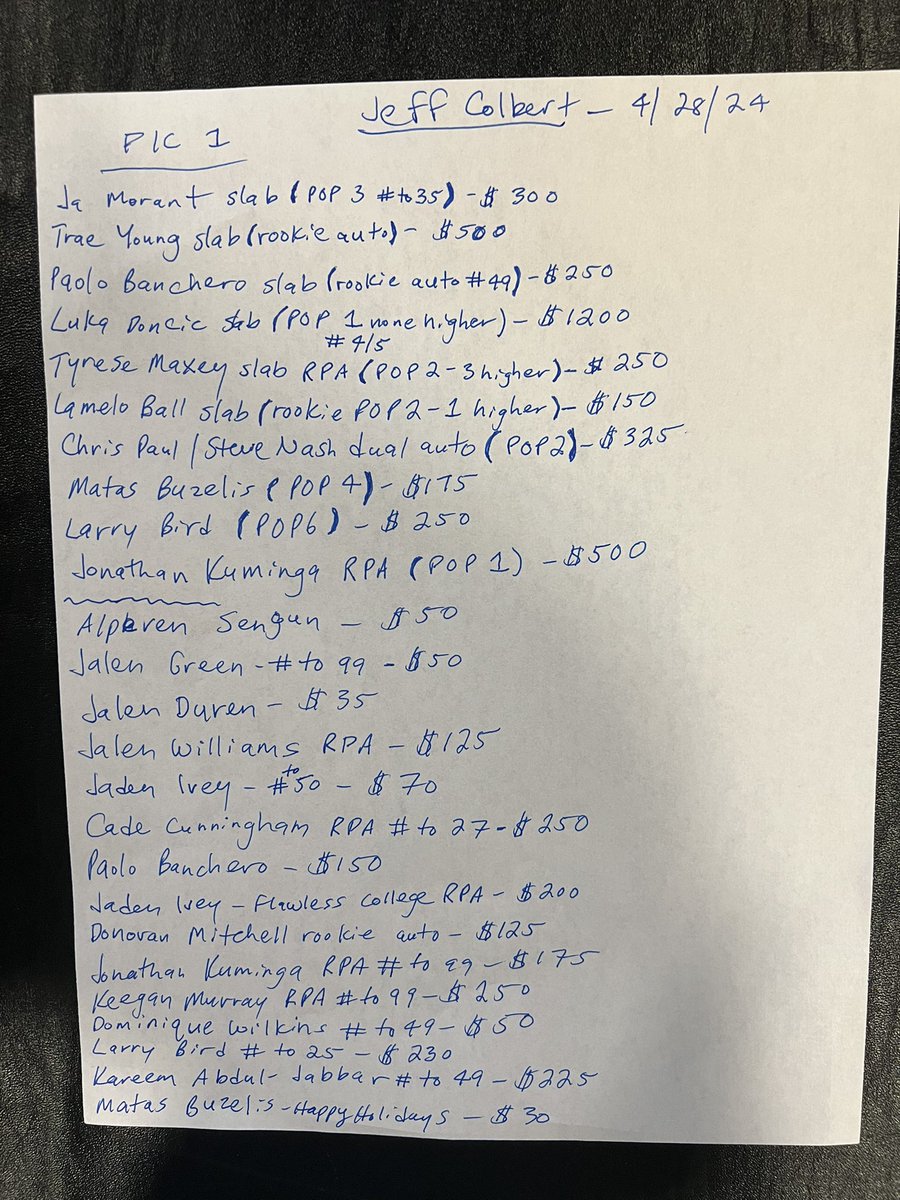 Jeff Colbert - 4/28/24
PIC 1
Ja Morant slab (POP 3 # to 35) - $300
Trae Young slab (rookie auto) - $500
Paolo Banchero slab (rookie auto #49) - $250
Luka Doncic slab (POP 1 none higher) - $1200
# 4/5
Tyrese Maxey slab RPA (POP 2 - 3 higher) - $250
Lamelo Ball slab (rookie POP 2 - 1 higher) - $150
Chris Paul / Steve Nash dual auto (POP 2) - $325
Matas Buzelis (POP 4) - $175
Larry Bird (POP 6) - $250
Jonathan Kuminga RPA (POP 1) - $500
Alperen Sengun - $50
Jalen Green - # to 99 - $50
Jalen Duren - $35
Jalen Williams RPA - $125
Jaden Ivey - # to 50 - $70
Cade Cunningham RPA # to 27 - $250
Paolo Banchero - $150
Jaden Ivey - Flawless College RPA - $200
Donovan Mitchell rookie auto - $125
Jonathan Kuminga RPA # to 99 - $175
Keegan Murray RPA # to 99 - $250
Dominique Wilkins # to 49 - $50
Larry Bird # to 25 - $230
Kareem Abdul-Jabbar # to 49 - $225
Matas Buzelis - Happy Holidays - $30